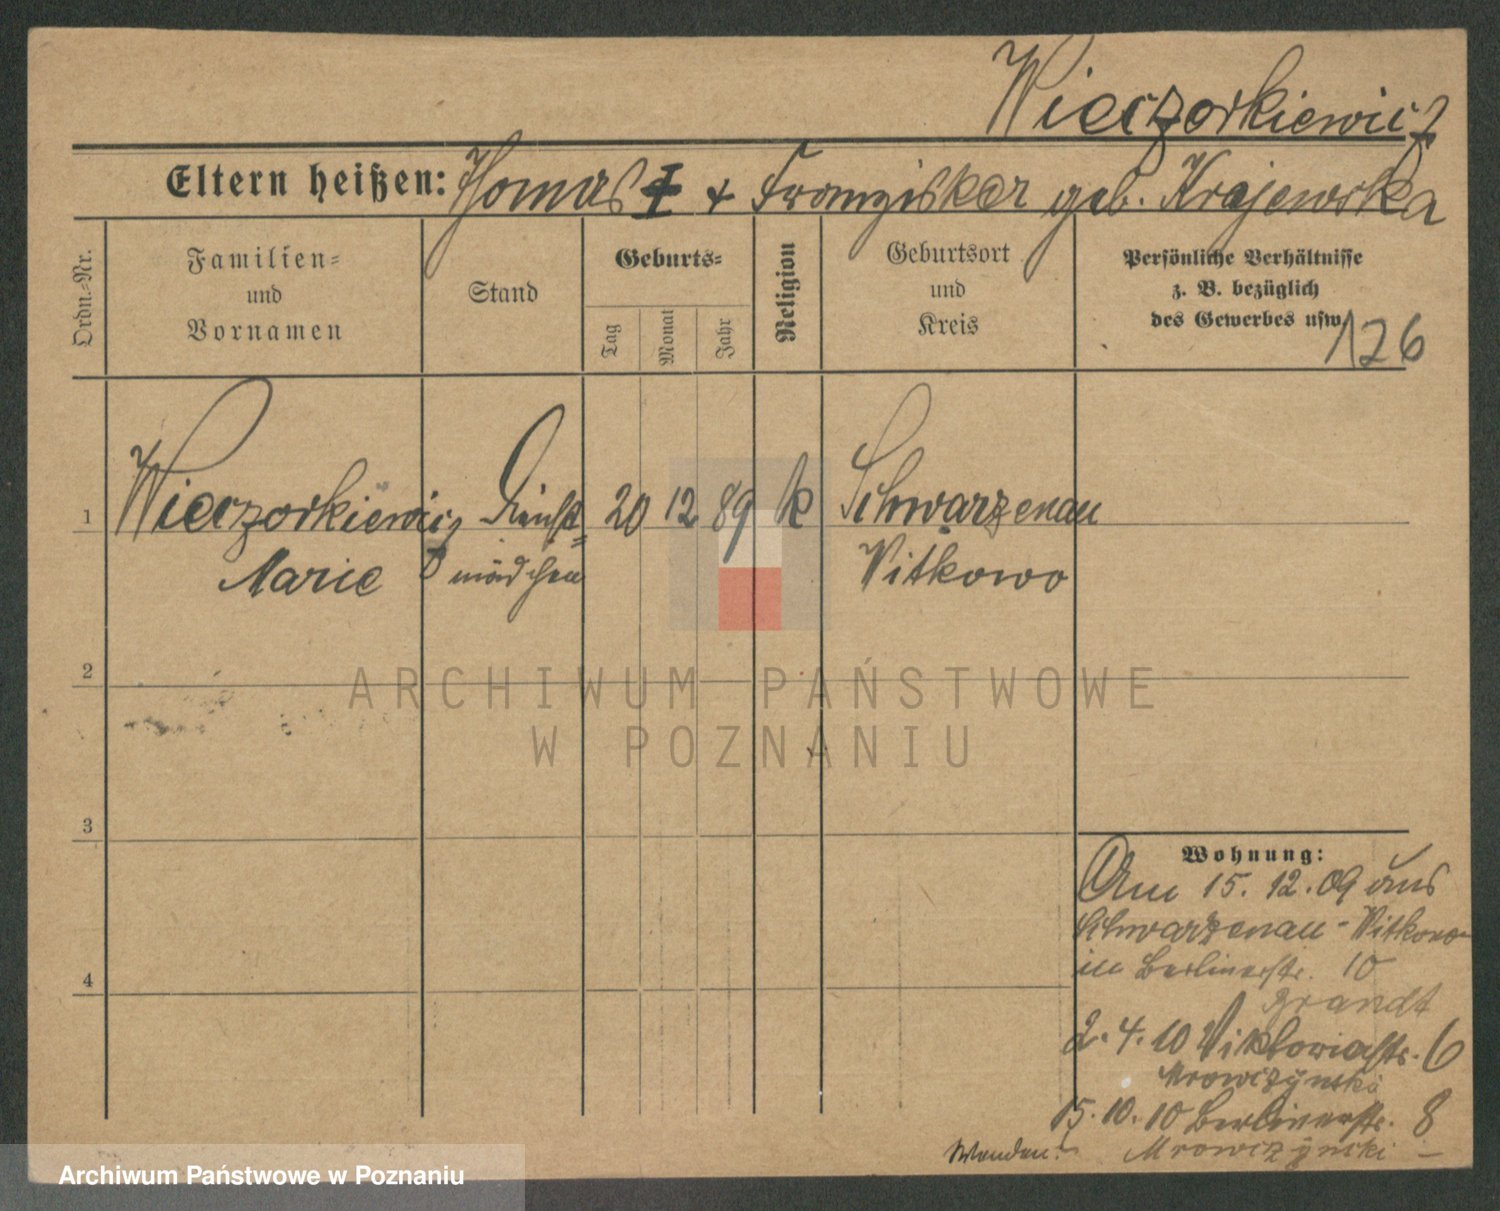 Wieczorkiewicz
Eltern heißen: Thomas + Franziska geb. Krajewska
Ordn.-Nr.
Familien-
und
Vornamen
Stand
Geburts-
Tag
Monat
Jahr
Religion
Geburtsort
und
Kreis
Persönliche Verhältnisse
z. B. bezüglich
des Gewerbes usw.
126
1 Wieczorkiewicz Dienst= 20 12 89 k Schwarzenau
Marie mädchen Witkowo
2
3
4
Wohnung:
Am 15. 12. 09 aus
Schwarzenau - Witkowo
in Berlinerstr. 10
Brandt
2. 4. 10 Viktoriastr. 6
Mrowczynski
15. 10. 10 Berlinerstr. 8
Mrowczynski
Wenden!
ARCHIWUM PAŃSTWOWE
W POZNANIU
Archiwum Państwowe w Poznaniu